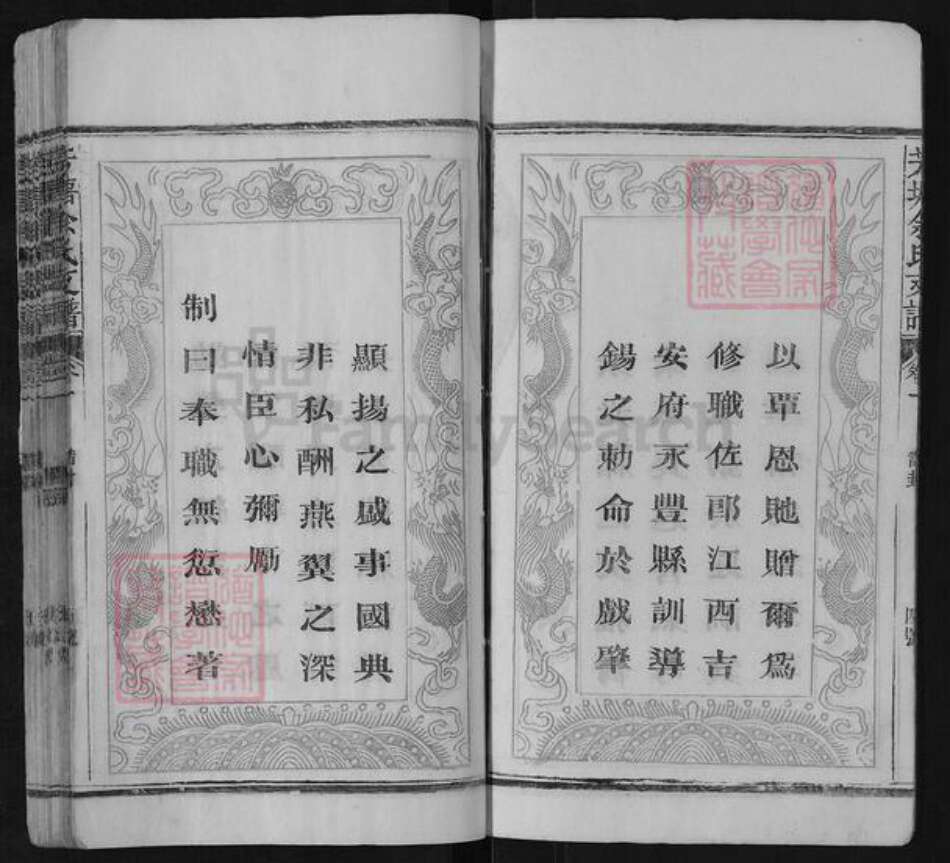 以覃恩貤贈爾為
修職佐郎江西吉
安府永豐縣訓導
錫之勅命於戲肇
顯揚之盛事國典
非私酬燕翼之深
情臣心彌勵
制曰奉職無愆懋著
FamilySearch